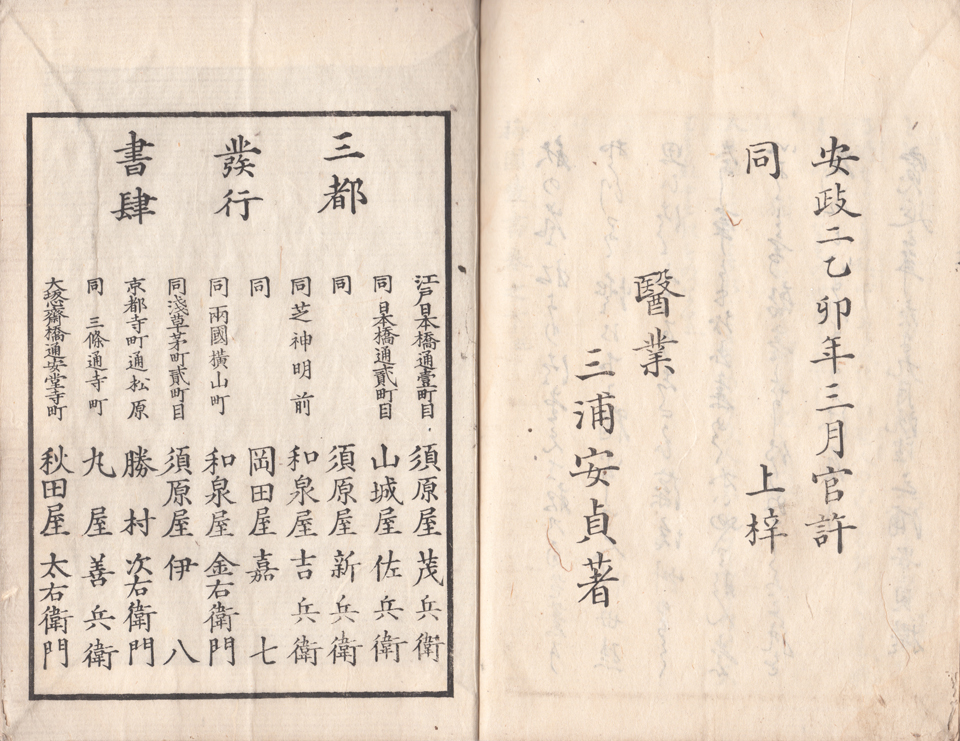 安政二乙卯年三月官許
同 上梓
醫業
三浦安貞著
三都
發行
書肆
江戸日本橋通壹町目 須原屋茂兵衛
同 日本橋通貳町目 山城屋佐兵衛
同 須原屋新兵衛
同 芝神明前 和泉屋吉兵衛
同 岡田屋嘉七
同 兩國横山町 和泉屋金右衛門
同 淺草茅町貳町目 須原屋伊八
京都寺町通松原 勝村次右衛門
同 三條通寺町 丸屋善兵衛
大坂心齋橋通安堂寺町 秋田屋太右衛門